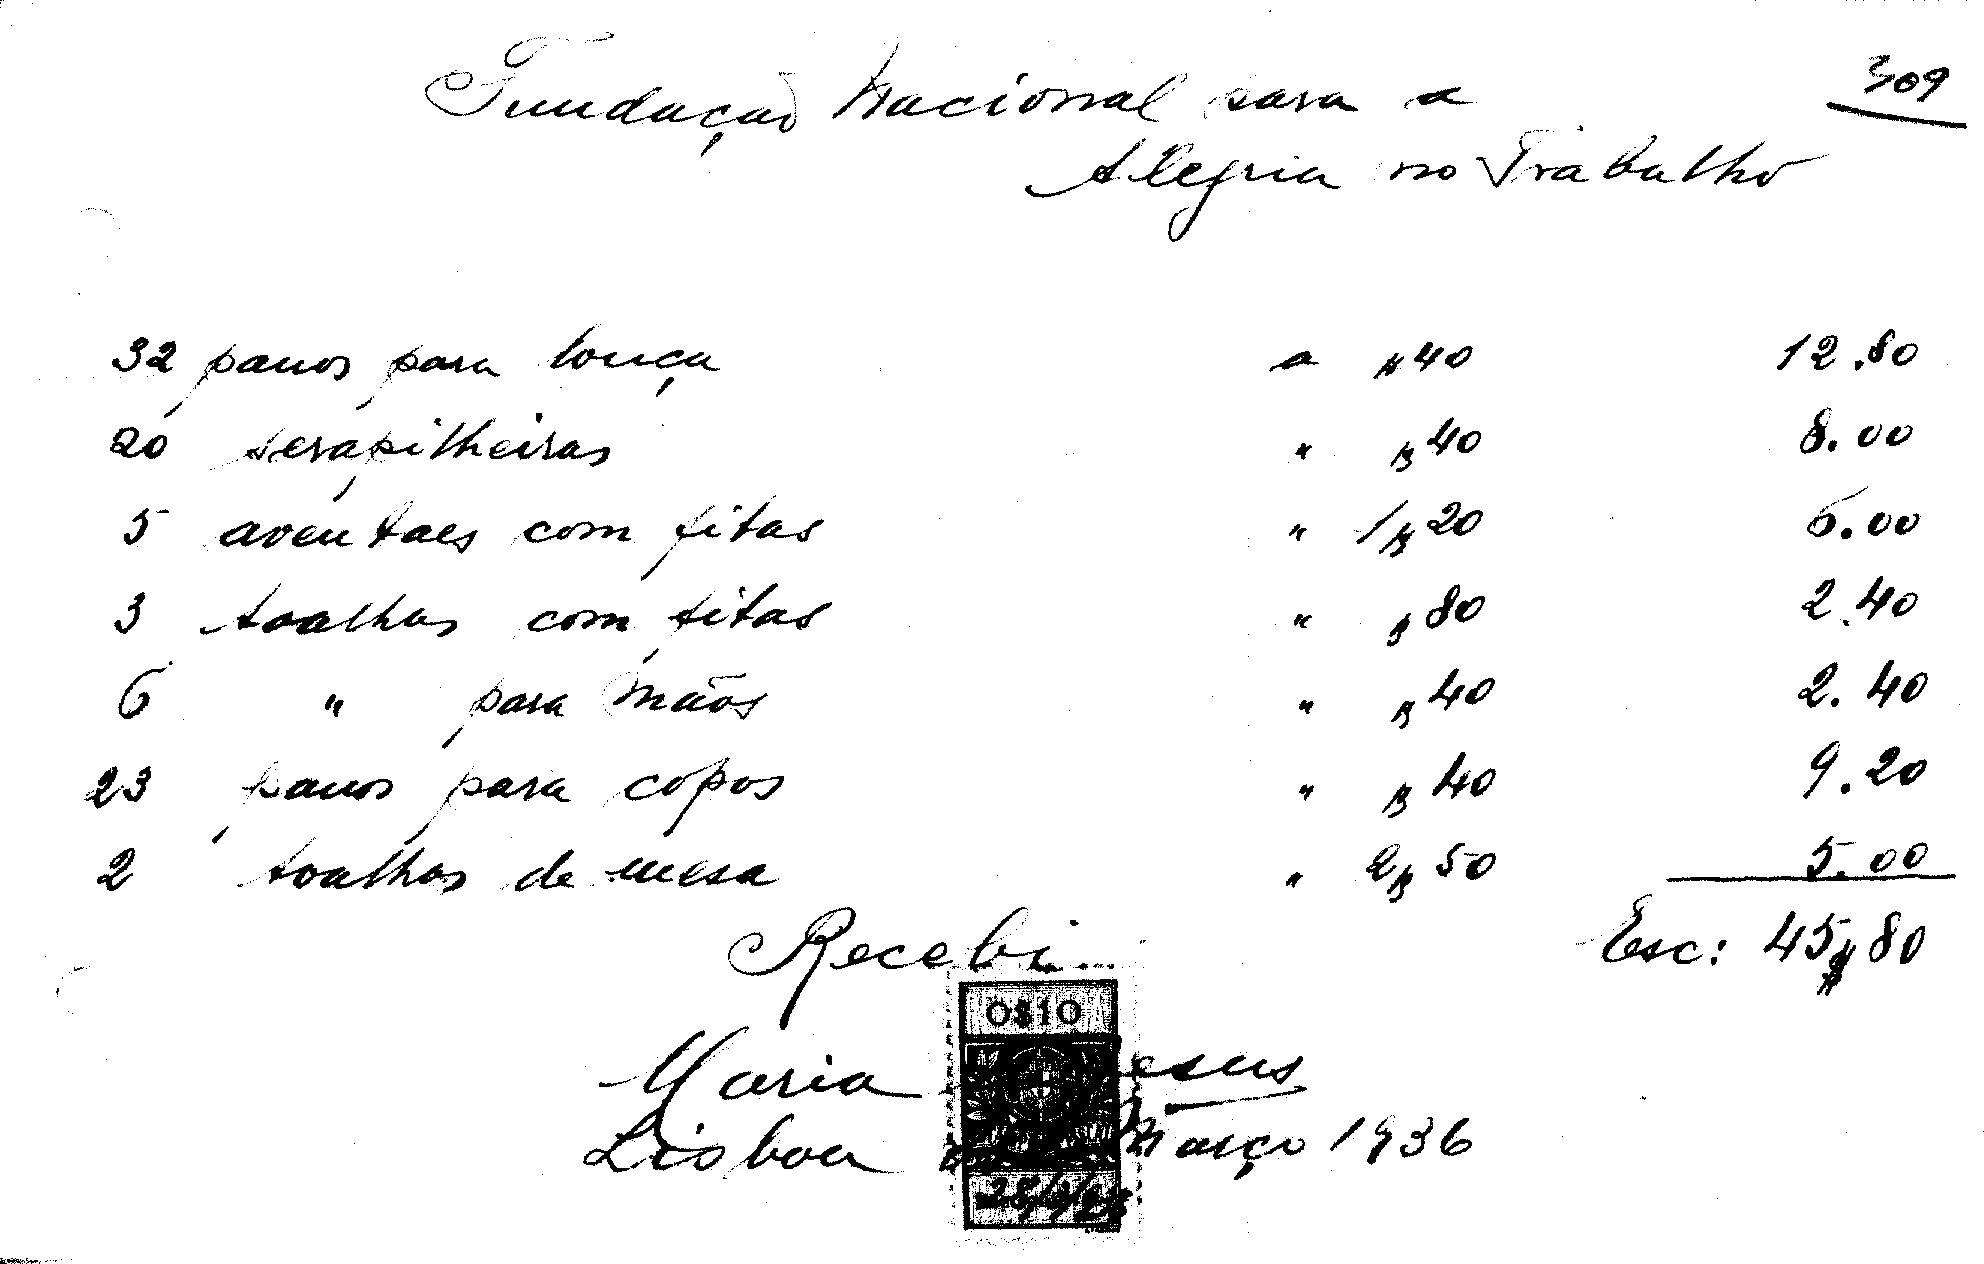 309
Fundação Nacional para a
Alegria no Trabalho
32 panos para louça a $40 12.80
20 serapilheiras " $40 8.00
5 aventaes com fitas " 1$20 6.00
3 toalhas com fitas " $80 2.40
6 " para mãos " $40 2.40
23 panos para copos " $40 9.20
2 toalhas de mesa " 2$50 5.00
Esc: 45$80
Recebi
0$10
Maria Jesus
Lisboa Março 1936